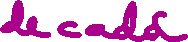 de cada